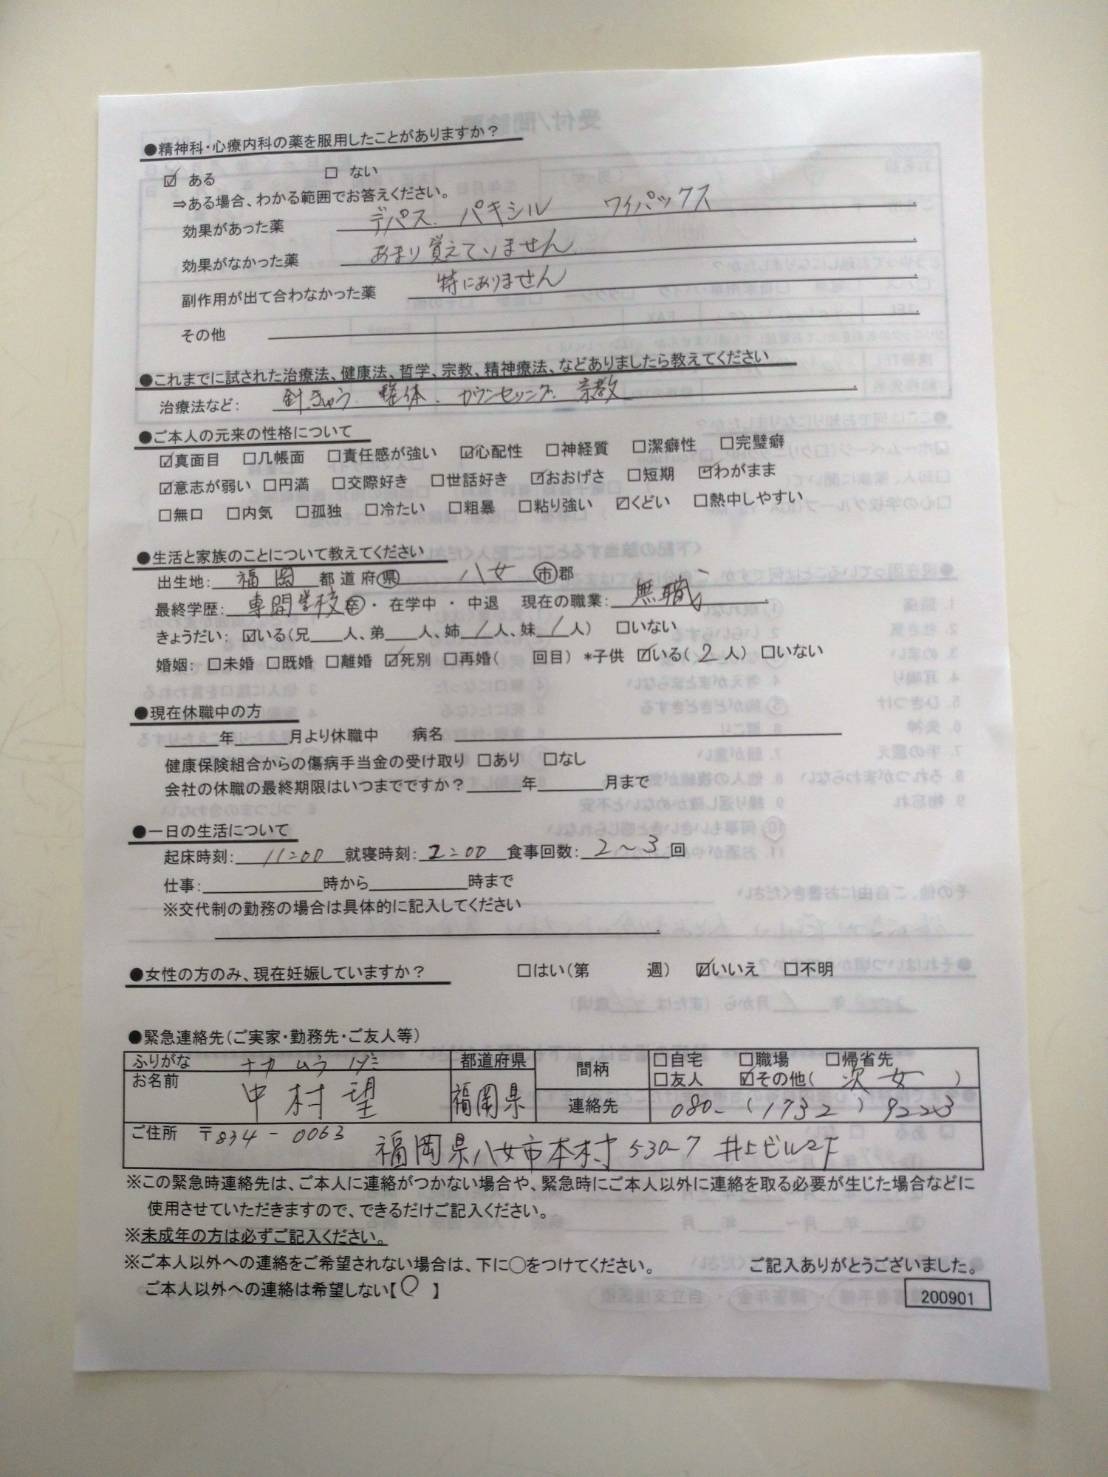 ●精神科・心療内科の薬を服用したことがありますか？
☑ ある □ ない
⇒ある場合、わかる範囲でお答えください。
効果があった薬 デパス. パキシル ワイパックス
効果がなかった薬 あまり覚えていません
副作用が出て合わなかった薬 特にありません
その他
●これまでに試された治療法、健康法、哲学、宗教、精神療法、などありましたら教えてください
治療法など: 針きゅう. 整体. カウンセリング. 宗教
●ご本人の元来の性格について
☑真面目 □几帳面 □責任感が強い ☑心配性 □神経質 □潔癖性 □完璧癖
☑意志が弱い □円満 □交際好き □世話好き ☑おおげさ □短期 ☑わがまま
□無口 □内気 □孤独 □冷たい □粗暴 □粘り強い ☑くどい □熱中しやすい
●生活と家族のことについて教えてください
出生地: 福岡 都 道 府 県 八女 市 郡
最終学歴: 専門学校 卒 ・ 在学中 ・ 中退 現在の職業: 無職
きょうだい: ☑いる(兄 人、弟 人、姉 1 人、妹 1 人) □いない
婚姻: □未婚 □既婚 □離婚 ☑死別 □再婚( 回目) *子供 ☑いる( 2 人) □いない
●現在休職中の方
年 月より休職中 病名
健康保険組合からの傷病手当金の受け取り □あり □なし
会社の休職の最終期限はいつまでですか? 年 月まで
●一日の生活について
起床時刻: 11:00 就寝時刻: 2:00 食事回数: 2〜3 回
仕事: 時から 時まで
※交代制の勤務の場合は具体的に記入してください
●女性の方のみ、現在妊娠していますか? □はい(第 週) ☑いいえ □不明
●緊急連絡先(ご実家・勤務先・ご友人等)
ふりがな ナカムラ ノゾミ 都道府県 間柄 □自宅 □職場 □帰省先
お名前 中村望 福岡県 □友人 ☑その他( 次女 )
連絡先 080-(1732)9223
ご住所 〒834-0063 福岡県八女市本村530-7 井上ビル2F
※この緊急時連絡先は、ご本人に連絡がつかない場合や、緊急時にご本人以外に連絡を取る必要が生じた場合などに
使用させていただきますので、できるだけご記入ください。
※未成年の方は必ずご記入ください。
※ご本人以外への連絡をご希望されない場合は、下に○をつけてください。 ご記入ありがとうございました。
ご本人以外への連絡は希望しない【○ 】
200901